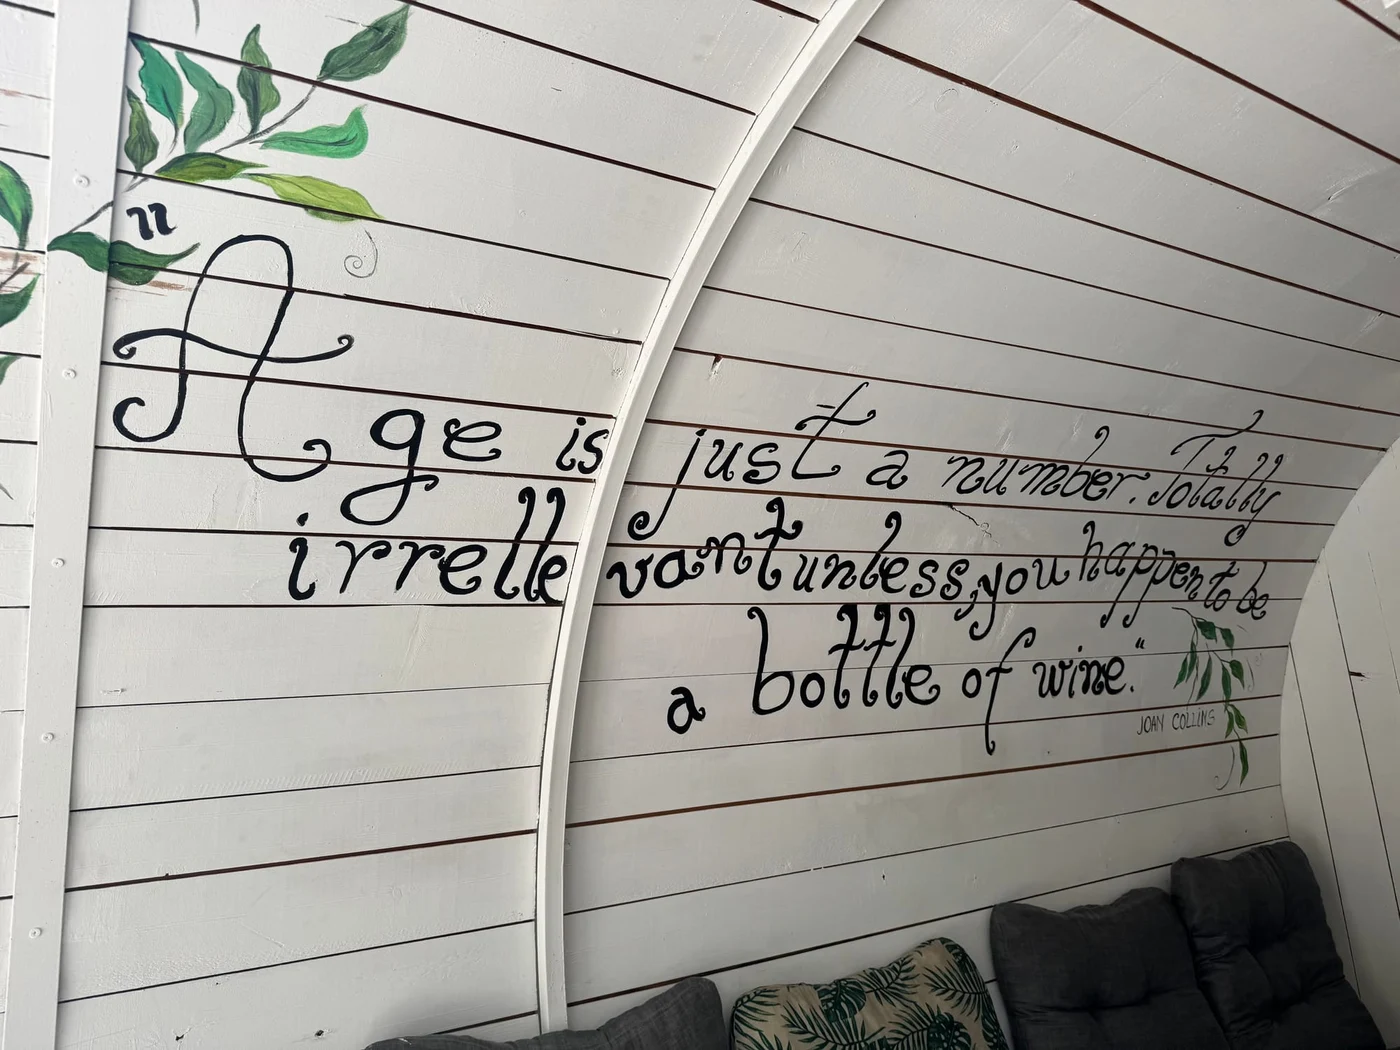 "Age is just a number. Totally
irrellevant unless, you happen to be
a bottle of wine."
JOAN COLLINS